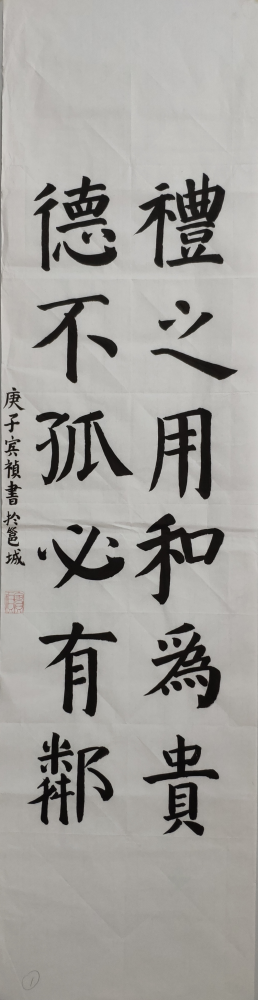 禮之用和為貴
德不孤必有鄰
庚子賓禎書於邕城
1